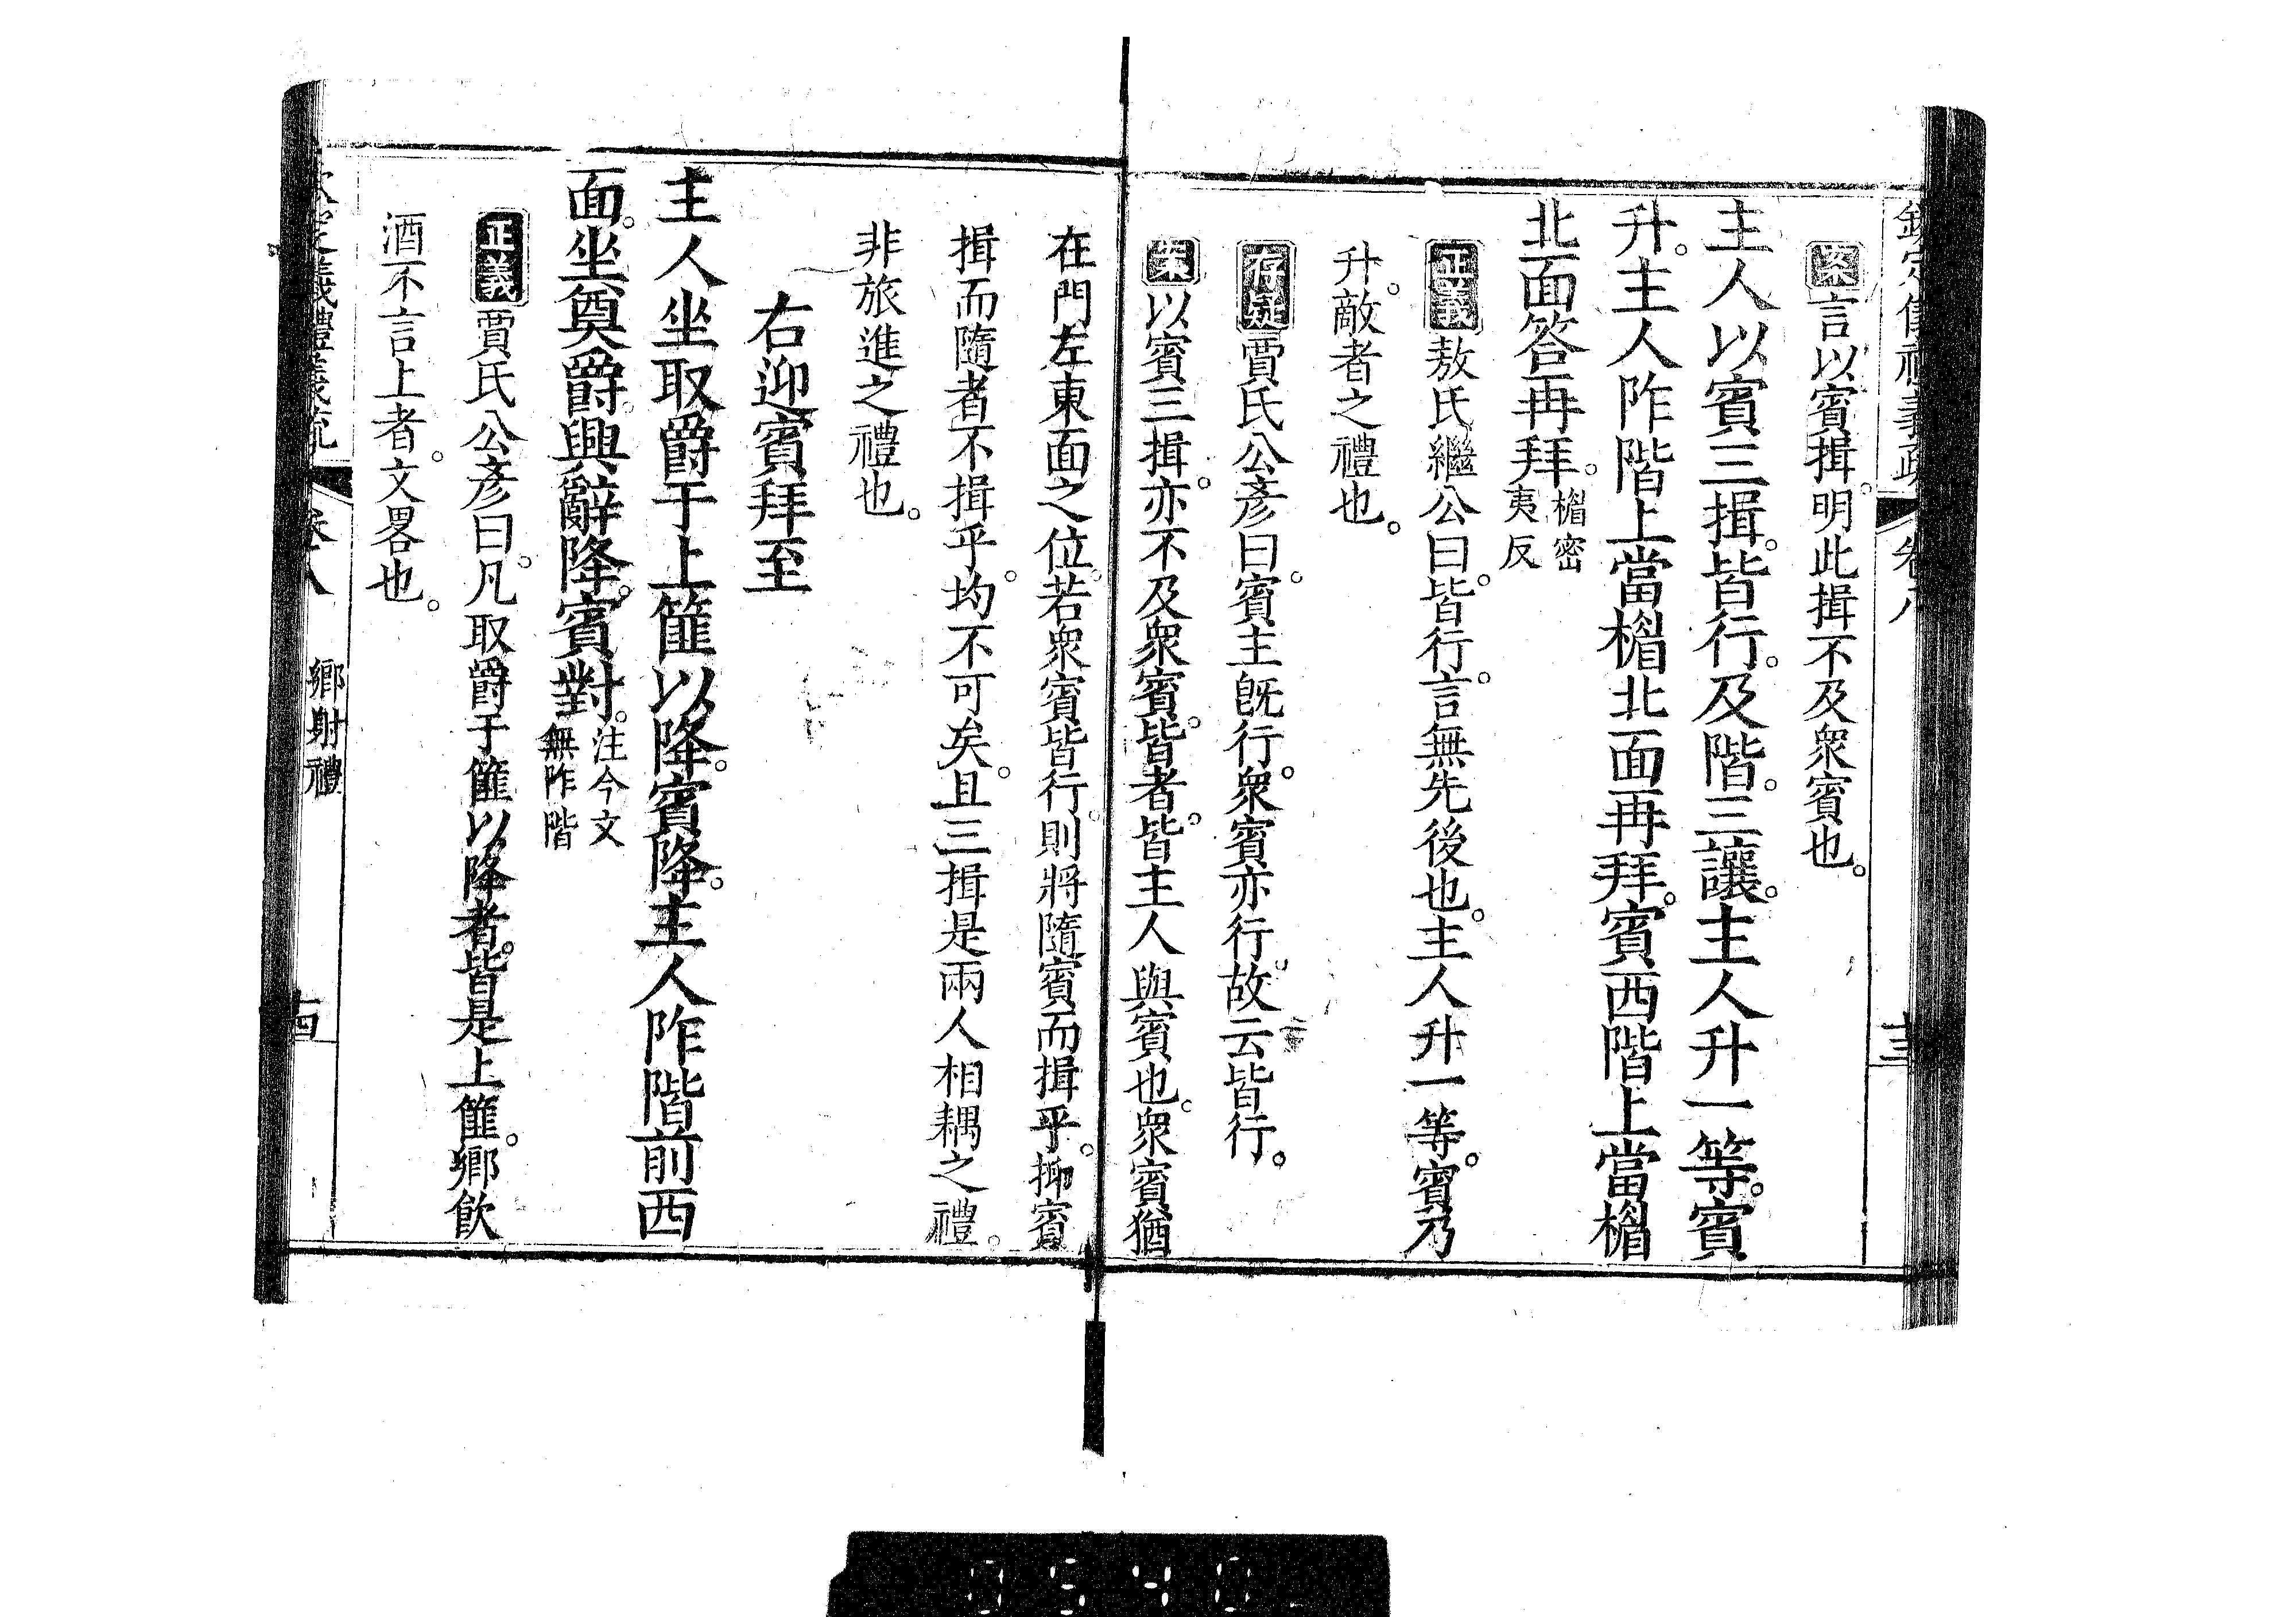 欽定儀禮義疏 卷八 十三
案言以賓揖。明此揖不及衆賓也。
主人以賓三揖。皆行。及階。三讓。主人升一等。賓
升。主人阼階上當楣北面再拜。賓西階上當楣
北面答再拜。楣密夷反
正義敖氏繼公曰。皆行。言無先後也。主人升一等。賓乃
升。敵者之禮也。
存疑賈氏公彥曰。賓主旣行。衆賓亦行。故云皆行。
案以賓三揖。亦不及衆賓。皆者。皆主人與賓也。衆賓猶
在門左東面之位。若衆賓皆行。則將隨賓而揖乎。抑賓
揖而隨者不揖乎。均不可矣。且三揖是兩人相耦之禮。
非旅進之禮也。
右迎賓拜至
主人坐取爵于上篚以降。賓降。主人阼階前西
面。坐奠爵。興辭降。賓對。注今文無阼階
正義賈氏公彥曰。凡取爵于篚以降者。皆是上篚。鄉飲
酒不言上者。文畧也。
欽定儀禮義疏 卷八 鄉射禮 十四
0540